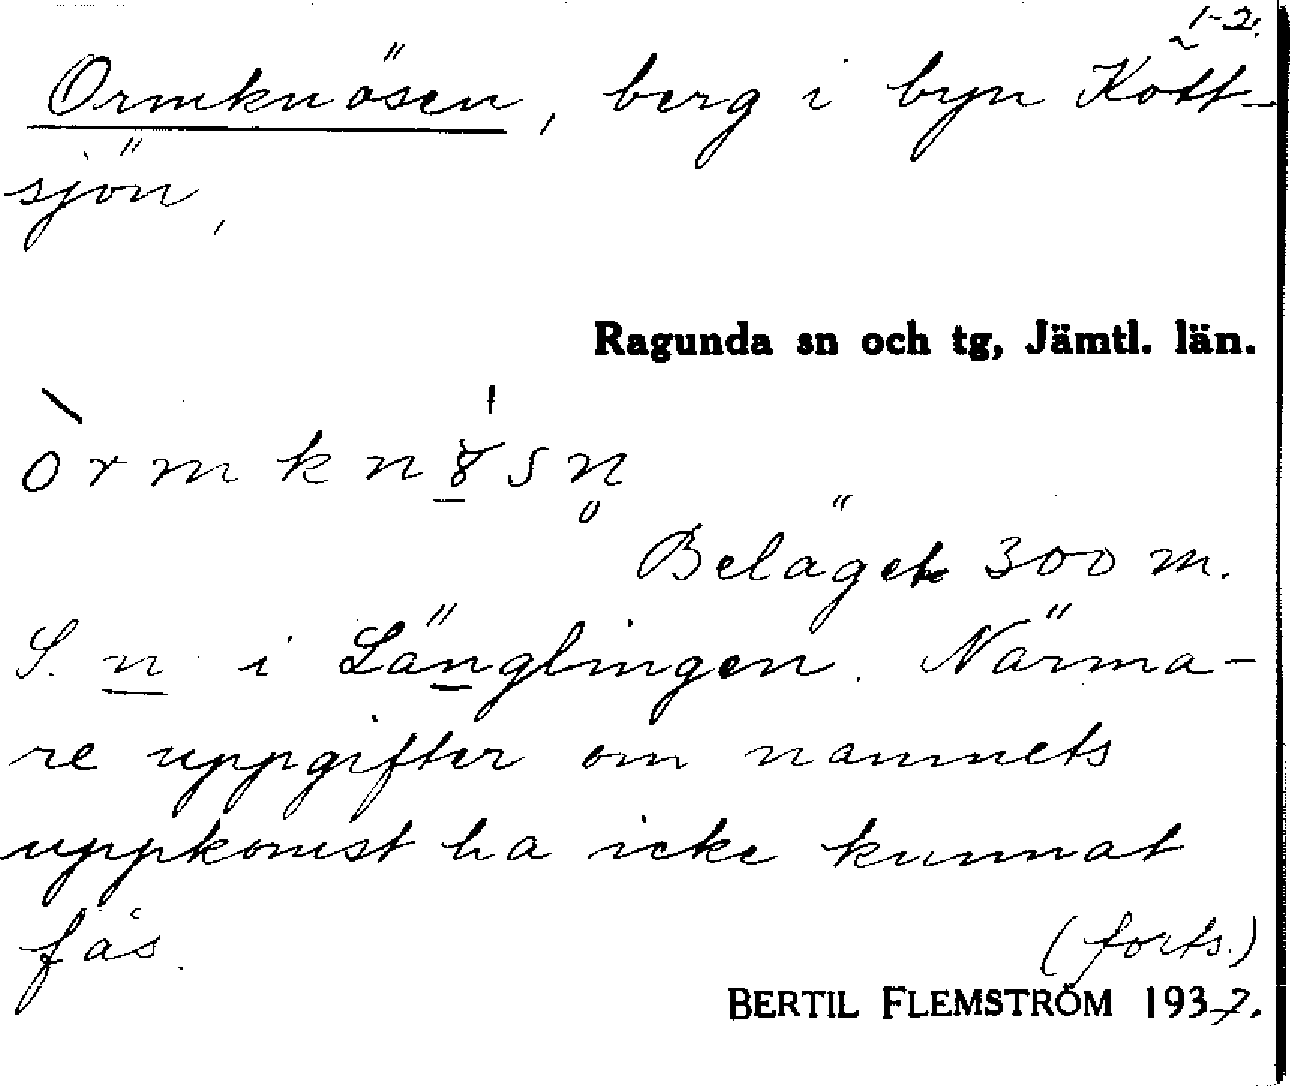 1-2.
Ormknösen, berg i byn Kött-
sjön,
Ragunda sn och tg, Jämtl. län.
Beläget 300 m.
S. n i Länglingen. Närma-
re uppgifter om namnets
uppkomst ha icke kunnat
fås.
(forts.)
BERTIL FLEMSTRÖM 1937.